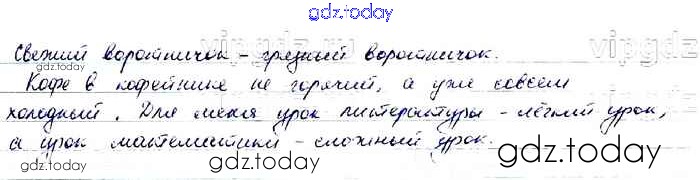 gdz.today
Свежий воротничок - грязный воротничок.
vipgdz
Кофе в кофейнике не горячий, а уже совсем
холодный. Для меня урок литературы - лёгкий урок,
gdz.today
а урок математики - сложный урок.
gdz.today
gdz.today